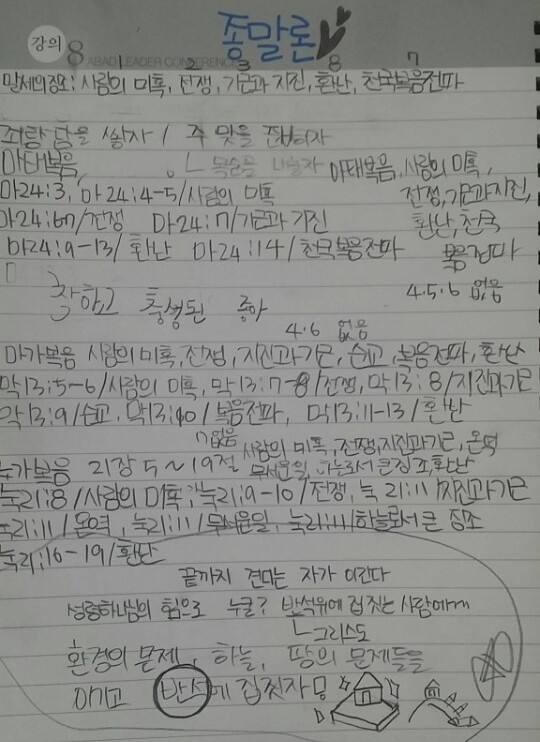 강의 8 종말론
ABAD LEADER CONFERENCE
1 2 3 8 7
말세의 징조: 사람의 미혹, 전쟁, 기근과 지진, 환난, 천국복음전파
쌓자 / 주 맞을 준비하자
마태복음 ㄴ 목숨을 마태복음, 사람의 미혹,
마24:3, 마24:4-5/사람의 미혹 전쟁, 기근과 지진,
마24:67/전쟁 마24:7/기근과 기진 환난, 천국
마24:9-13/환난 마24:14/천국복음전파 복음전파
착하고 충성된 종아 4.5.6 없음
4.6 없음
마가복음 사람의 미혹, 전쟁, 지진과 기근, 순교, 복음전파, 환난
막13:5-6/사람의 미혹, 막13:7-8/전쟁, 막13:8/지진과 기근
막13:9/순교, 막13:10/복음전파, 막13:11-13/환난
7 없음 사람의 미혹, 전쟁, 지진과 기근, 온역
누가복음 21장 5~19절 무서운일, 하늘로서 큰 징조, 환난
눅21:8/사람의 미혹, 눅21:9-10/전쟁, 눅21:11/지진과 기근
눅21:11/온역, 눅21:11/무서운일, 눅21:11/하늘로서 큰 징조
눅21:16-19/환난
끝까지 견디는 자가 이긴다
성령하나님의 힘으로 누굴? 반석위에 집 짓는 사람에게
ㄴ그리스도
환경의 문제, 하늘, 땅의 문제들을
이기고 반석에 집 짓자